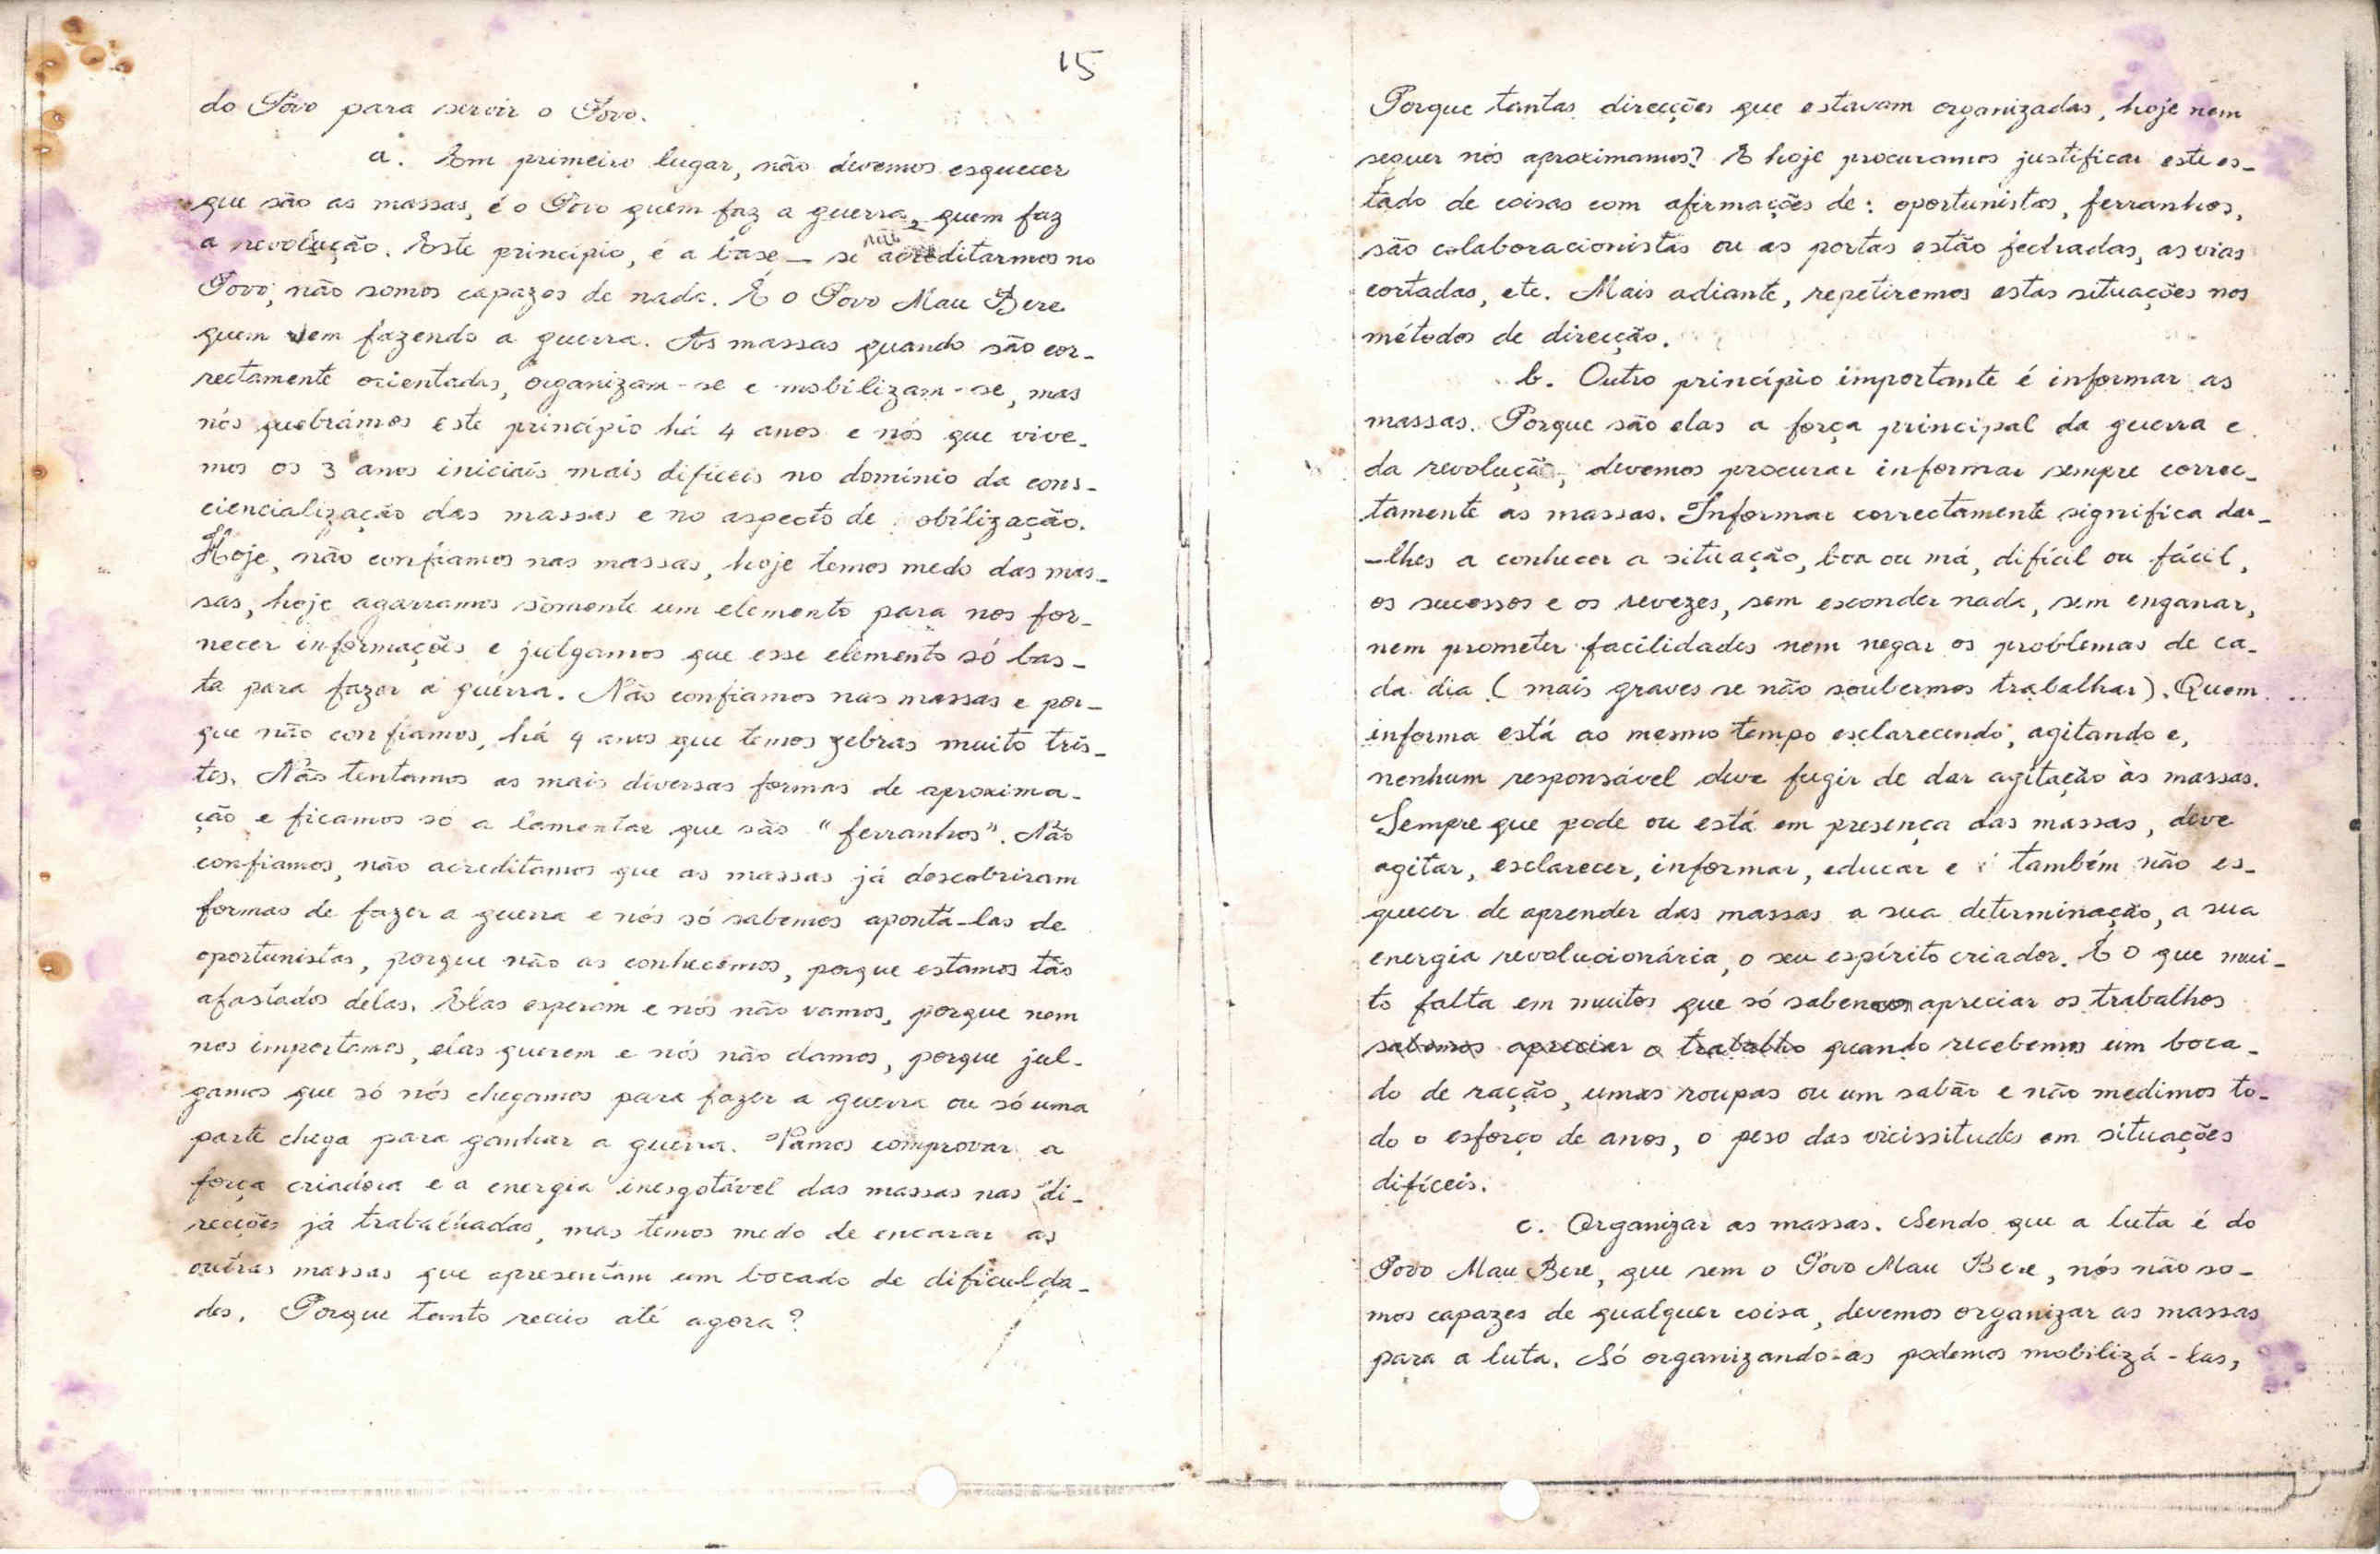 15
do Povo para servir o Povo.
a. Em primeiro lugar, não devemos esquecer
que são as massas, é o Povo quem faz a guerra, quem faz
a revolução. Este princípio, é a base _ se não acreditarmos no
Povo, não somos capazes de nada. É o Povo Mau Bere
quem vem fazendo a guerra. As massas quando são cor-
rectamente orientadas, organizam-se e mobilizam-se, mas
nós quebrámos este princípio há 4 anos e nós que vive-
mos os 3 anos iniciais mais difíceis no domínio da cons-
ciencialização das massas e no aspecto de obilização.
Hoje, não confiamos nas massas, hoje temos medo das mas-
sas, hoje agarramos somente um elemento para nos for-
necer informações e julgamos que esse elemento só bas-
ta para fazer a guerra. Não confiamos nas massas e por-
que não confiamos, há 4 anos que temos zebras muito tris-
tes. Não tentamos as mais diversas formas de aproxima-
ção e ficamos só a lamentar que são "ferranhos". Não
confiamos, não acreditamos que as massas já descobriram
formas de fazer a guerra e nós só sabemos apontá-las de
oportunistas, porque não as conhecemos, porque estamos tão
afastados delas. Elas esperam e nós não vamos, porque nem
nos importamos, elas querem e nós não damos, porque jul-
gamos que só nós chegamos para fazer a guerra ou só uma
parte chega para ganhar a guerra. Vamos comprovar a
força criadora e a energia inesgotável das massas nas di-
recções já trabalhadas, mas temos medo de encarar as
outras massas que apresentam um bocado de dificulda-
des. Porque tanto receio até agora?
Porque tantas direcções que estavam organizadas, hoje nem
sequer nós aproximamos? E hoje procuramos justificar este es-
tado de coisas com afirmações de: oportunistas, ferranhos,
são colaboracionistas ou as portas estão fechadas, as vias
cortadas, etc. Mais adiante, repetiremos estas situações nos
métodos de direcção.
b. Outro princípio importante é informar as
massas. Porque são elas a força principal da guerra e
da revolução, devemos procurar informar sempre correc-
tamente as massas. Informar correctamente significa dar-
-lhes a conhecer a situação, boa ou má, difícil ou fácil,
os sucessos e os revezes, sem esconder nada, sem enganar,
nem prometer facilidades nem negar os problemas de ca-
da dia (mais graves se não soubermos trabalhar). Quem
informa está ao mesmo tempo esclarecendo, agitando e,
nenhum responsável deve fugir de dar agitação às massas.
Sempre que pode ou está em presença das massas, deve
agitar, esclarecer, informar, educar e também não es-
quecer de aprender das massas a sua determinação, a sua
energia revolucionária, o seu espírito criador. É o que mui-
to falta em muitos que só sabemos apreciar os trabalhos
sabemos apreciar o trabalho quando recebemos um boca-
do de ração, umas roupas ou um sabão e não medimos to-
do o esforço de anos, o peso das vicissitudes em situações
difíceis.
c. Organizar as massas. Sendo que a luta é do
Povo Mau Bere, que sem o Povo Mau Bere, nós não so-
mos capazes de qualquer coisa, devemos organizar as massas
para a luta. Só organizando-as podemos mobilizá-las,